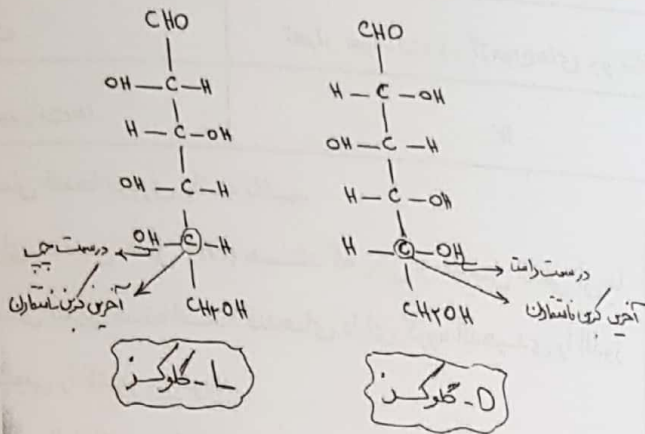 CHO
OH — C — H
H — C — OH
OH — C — H
OH — C — H
در سمت چپ
آخرین کربن نامتقارن
CH۲OH
L - گلوکز
CHO
H — C — OH
OH — C — H
H — C — OH
H — C — OH
در سمت راست
آخرین کربن نامتقارن
CH۲OH
D - گلوکز